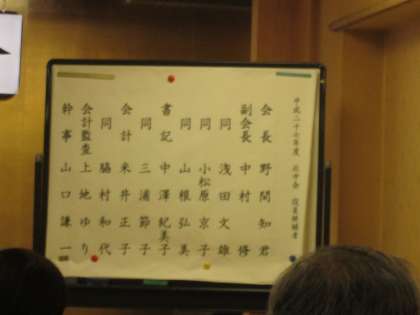 平成二十七年度 北中会 役員候補者
会長 野間知君
副会長 中村修
同 浅田文雄
同 小松原京子
同 山根弘美
書記 中澤紀美子
同 三浦節子
会計 米井正子
同 脇村和代
会計監査 上地ゆり
幹事 山口謙一